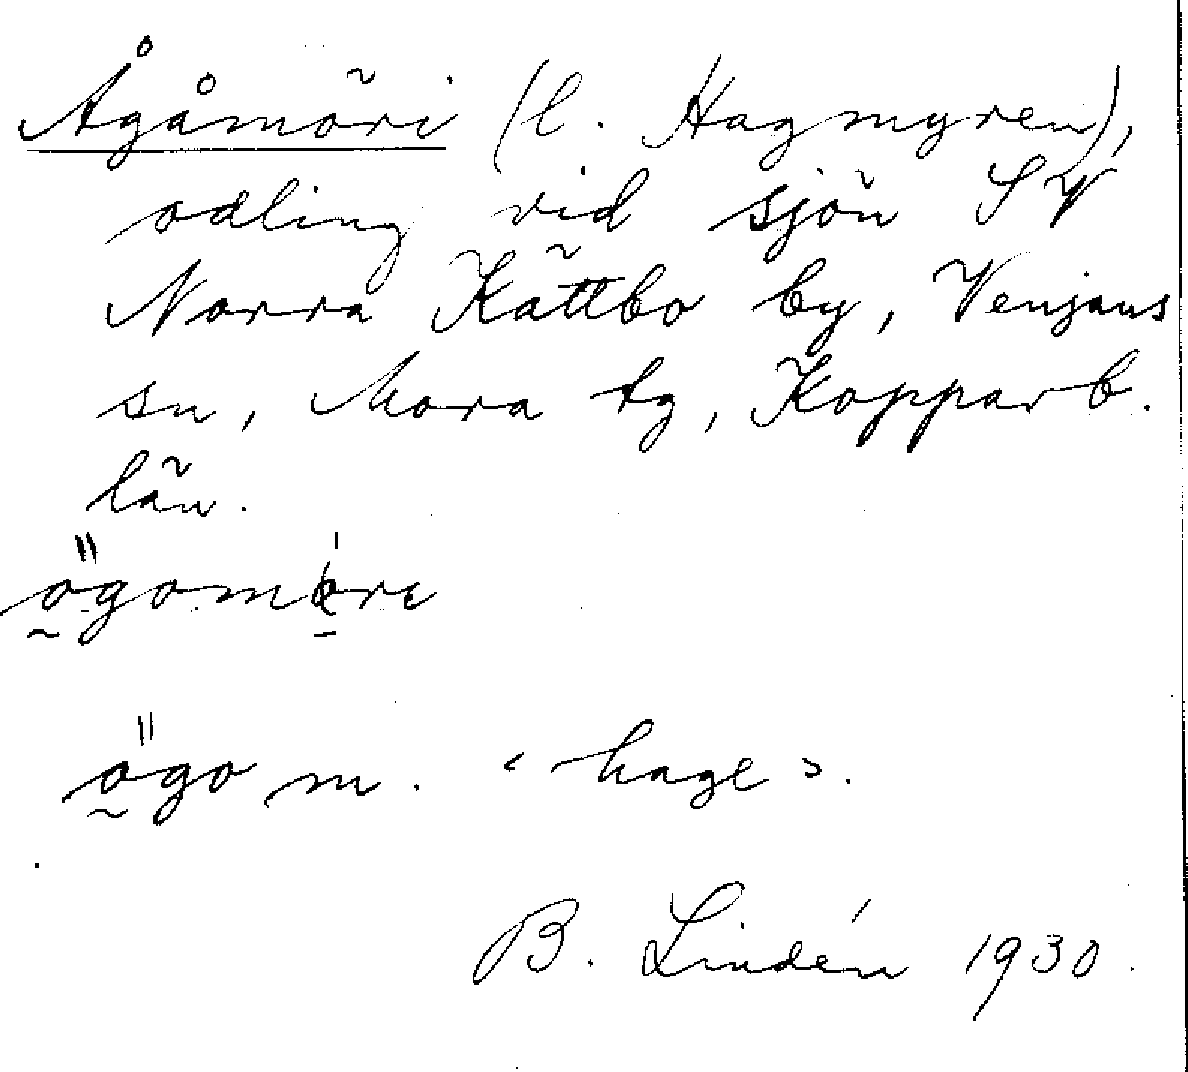 Ågåmöri (l. Hagmyren),
odling vid sjön SV
Norra Kättbo by, Venjans
sn, Mora tg, Kopparb.
län.
ögomøre
ögo m. ‹hage›.
B. Lindén 1930.